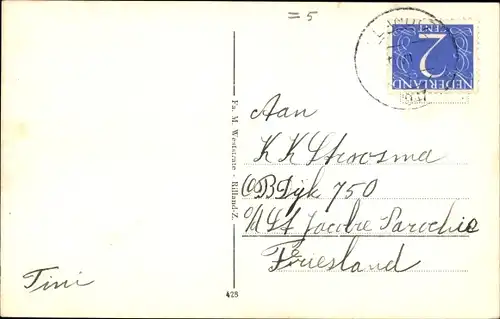 = 5
NEDERLAND
2
CENT
Fa. M. Weststrate - Rilland-Z.
Aan
K K Sterosma
O B Dijk 750
o/d St. Jacobie Parochie
Friesland
Tini
428